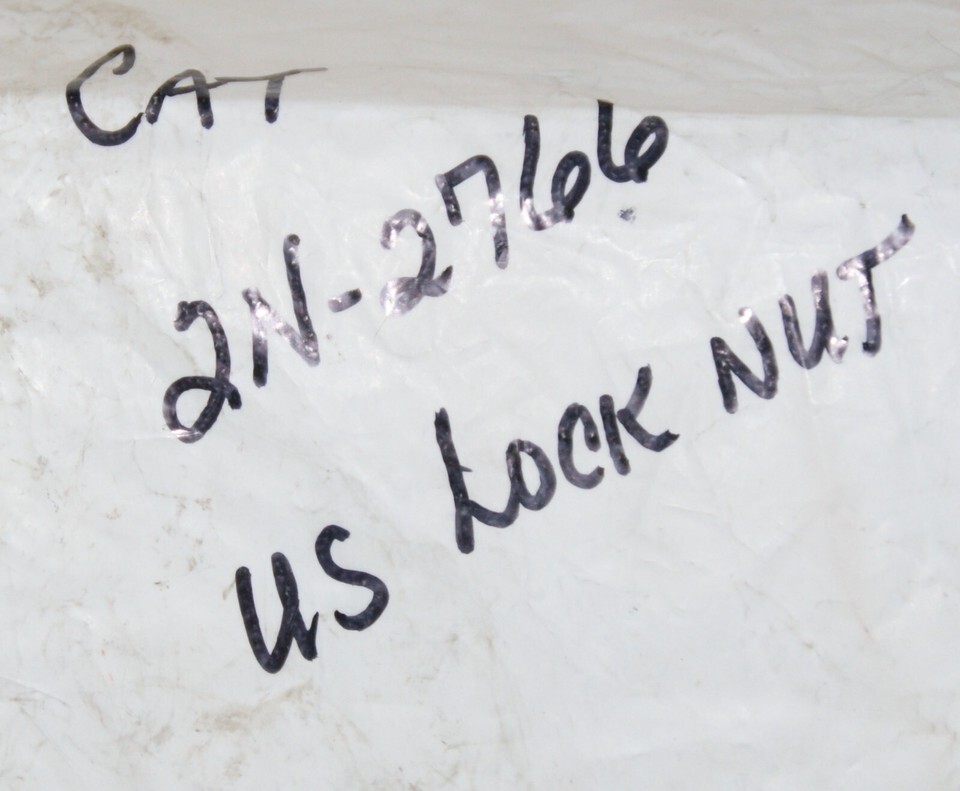 CAT
2N-2766
US LOCK NUT